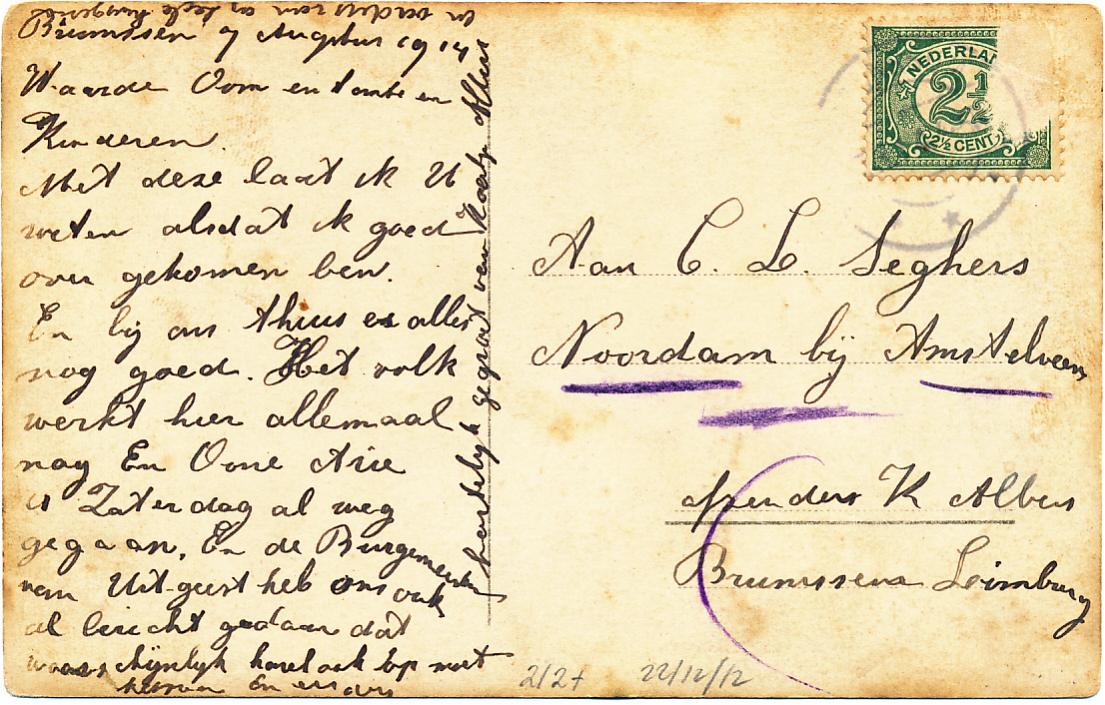 Brunssen 9 Augustus 1914
Waarde Oom en tante en
Kinderen.
Met deze laat ik U
weten alsdat ik goed
over gekomen ben.
En bij ons thuus es alles
nog goed. Het volk
werkt hier allemaal
nog En Ome Arie
is Zaterdag al weg
gegaan, En de Burgemeester
van Uitgeest heb ons ook
al bericht gedaan dat
waarschijnlyk karel ook op moet
En
hartelyk gegroet van Kaatje Albers
NEDERLAN
2½
2½ CENT
Aan C. L. Seghers
Noordam bij Amstelveen
afzender K Albers
Brunssen Leimburg
2/27 22/12/12